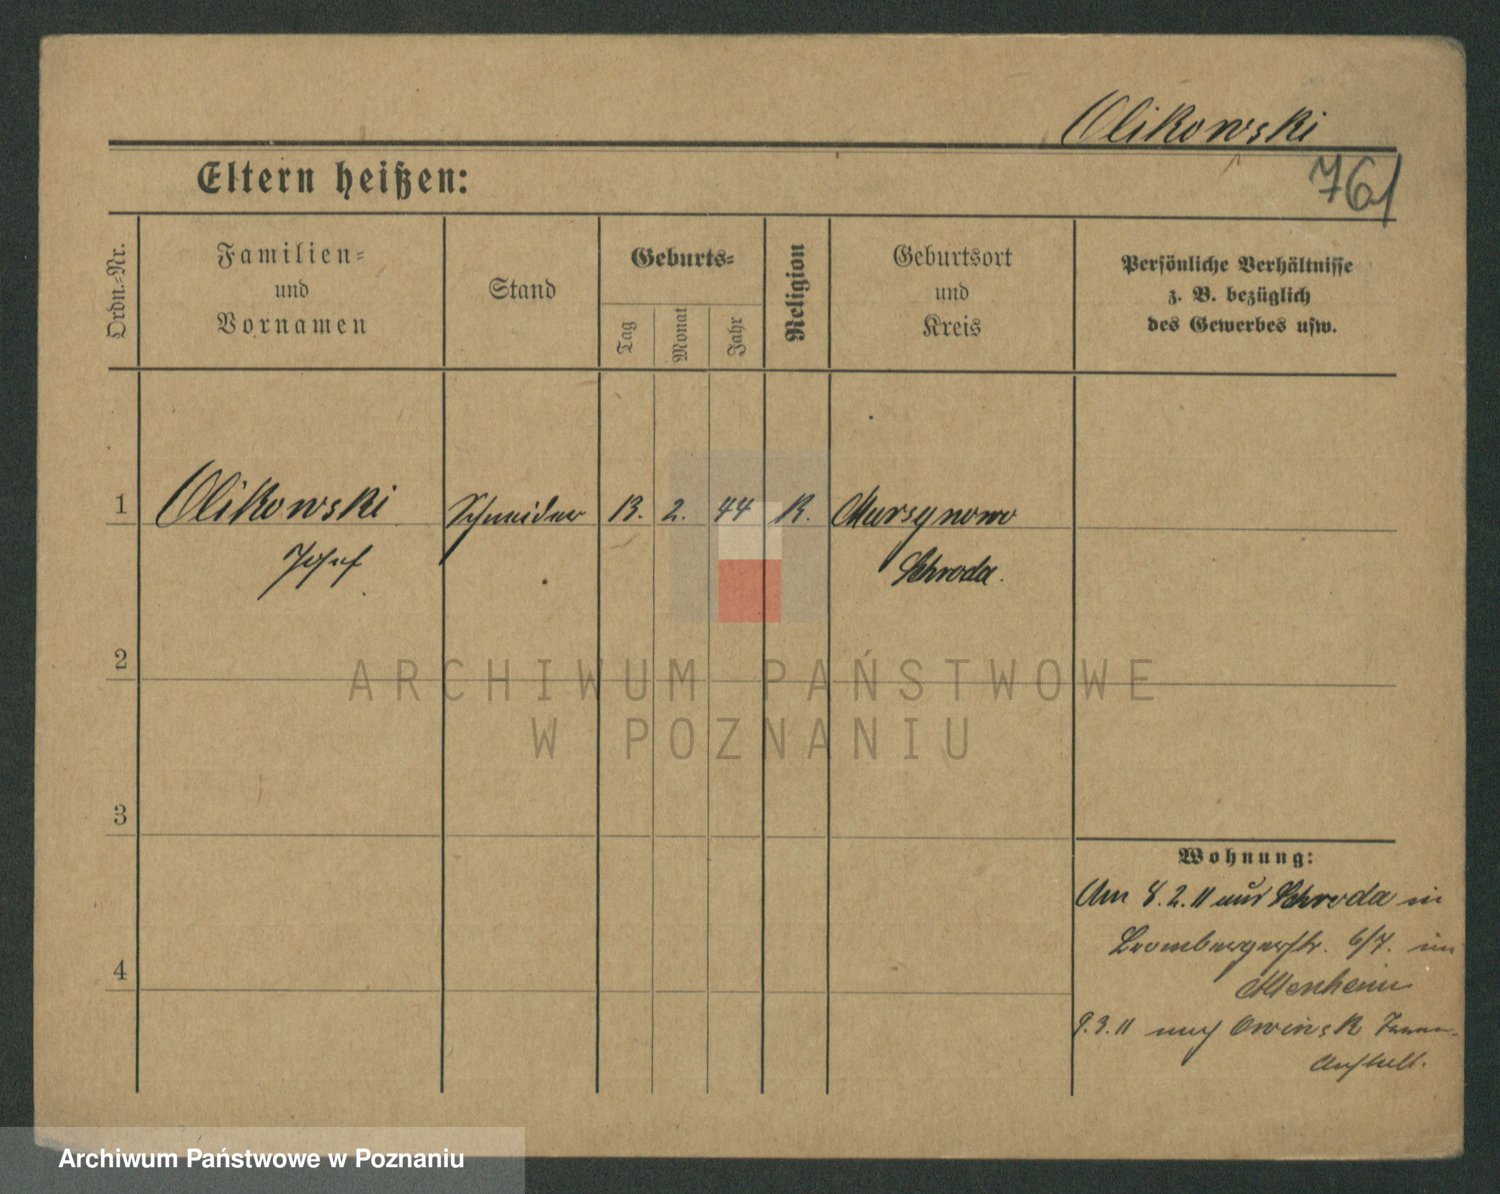 Olikowski
Eltern heißen:
761
Ordn.=Nr.
Familien=
und
Vornamen
Stand
Geburts=
Tag
Monat
Jahr
Religion
Geburtsort
und
Kreis
Persönliche Verhältnisse
z. B. bezüglich
des Gewerbes usw.
1 Olikowski Schneider 13. 2. 44 K. Mursynowo
Josef Schroda.
2
3
4
Wohnung:
Am 8.2.11 aus Schroda in
Brombergerstr. 6/7. im
Altenheim
9.3.11 nach Owinsk Irren-
Anstalt.
ARCHIWUM PAŃSTWOWE
W POZNANIU
Archiwum Państwowe w Poznaniu